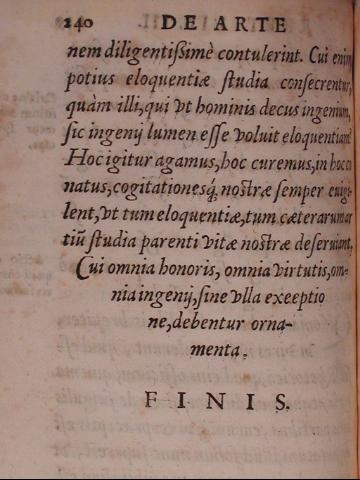 240 DE ARTE
nem diligentißimè contulerint. Cui enim
potius eloquentiæ studia consecrentur,
quàm illi, qui vt hominis decus ingenium,
sic ingenij lumen esse voluit eloquentiam?
Hoc igitur agamus, hoc curemus, in hoc co
natus, cogitationesq́; nostræ semper euigi
lent, vt tum eloquentiæ, tum cæterarum ar
tiũ studia parenti vitæ nostræ deseruiant,
Cui omnia honoris, omnia virtutis, om-
nia ingenij, sine vlla exeeptio
ne, debentur orna-
menta.
FINIS.